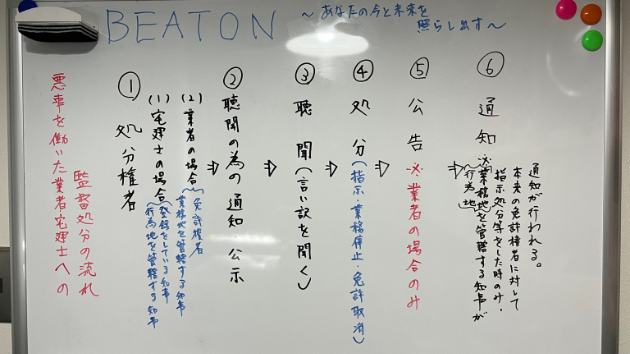 BEATON
～あなたの今と未来を
照らし出す～
悪事を働いた業者宅理士への
監督処分の流れ
① 処分権者
(1) 宅理士の場合
登録をしている知事
行為地を管轄する知事
(2) 業者の場合
免許権者
業務地を管轄する知事
⇨
② 聴聞の為の通知 公示
⇨
③ 聴聞(言い訳を聞く)
⇨
④ 処分(指示・業務停止・免許取消)
⇨
⑤ 公告 ※業者の場合のみ
⇨
⑥ 通知
※業務地を管轄する知事が
行為地
指示処分等をした時のみ・
本来の免許権者に対して
通知が行われる。